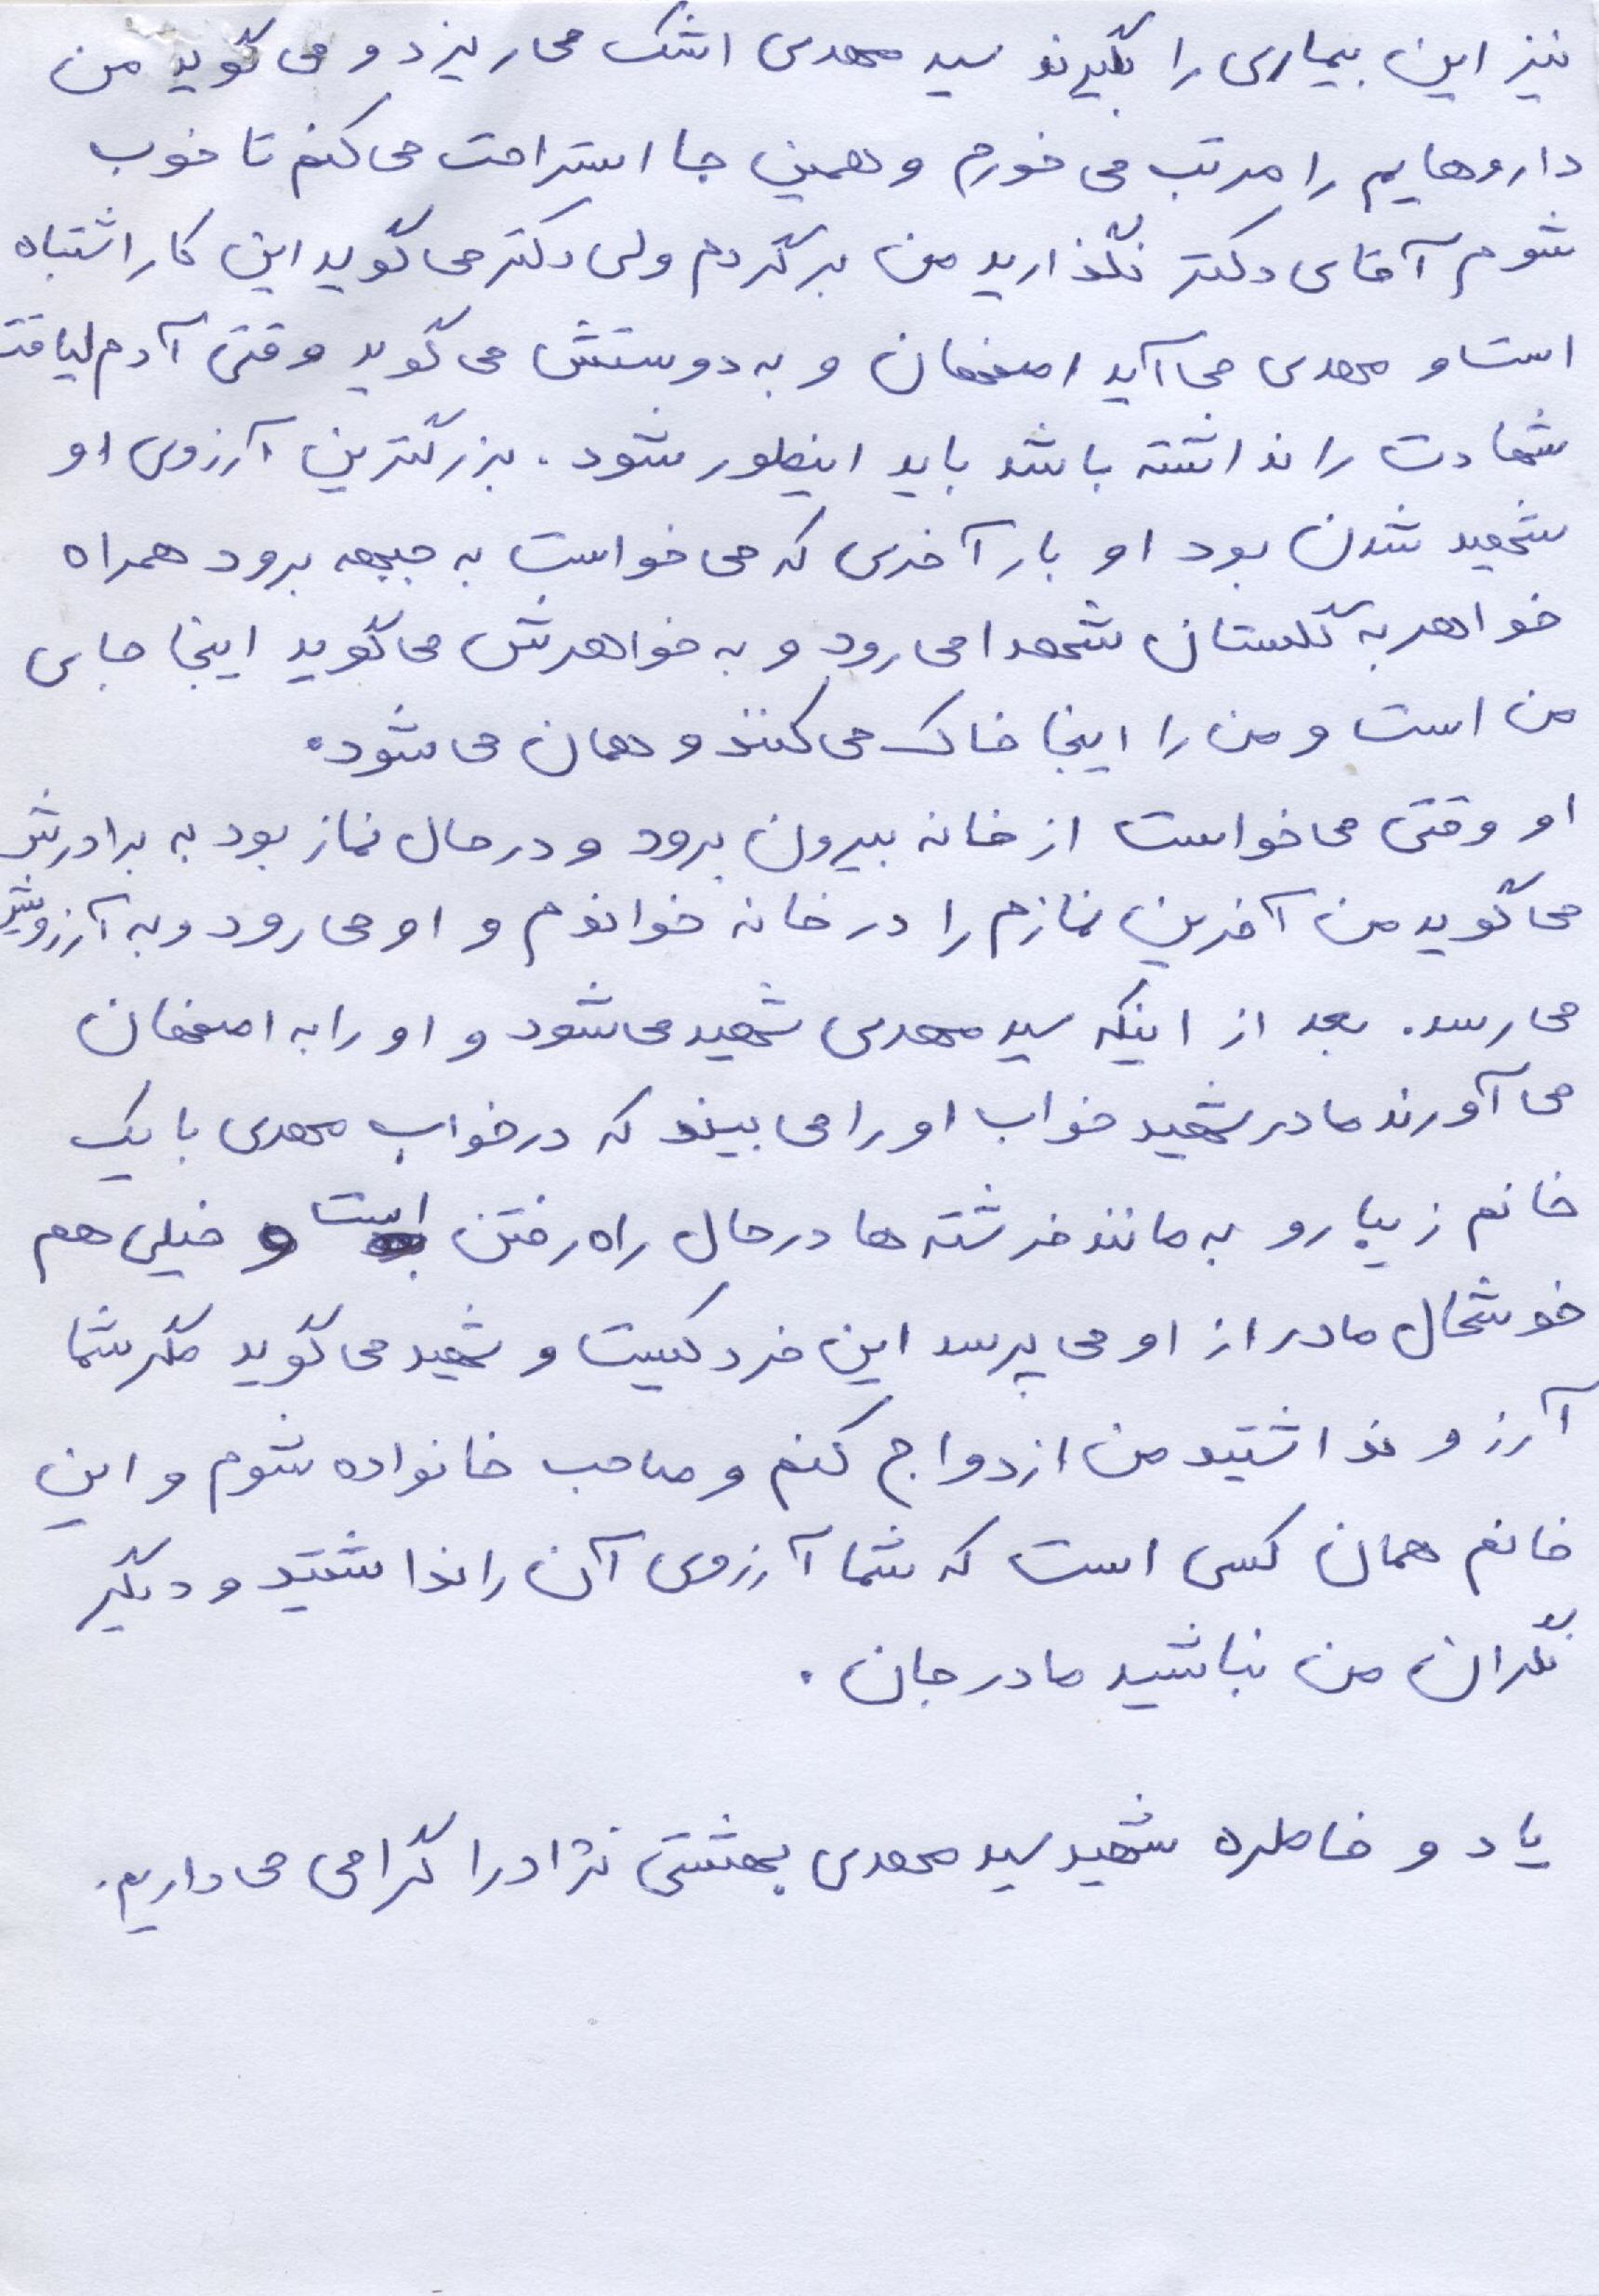 نیز این بیماری را بگیرند سید مهدی اشک می ریزد و می گوید من
داروهایم را مرتب می خورم و همین جا استراحت می کنم تا خوب
شوم آقای دکتر نگذارید من برگردم ولی دکتر می گوید این کار اشتباه
است و مهدی می آید اصفهان و به دوستش می گوید وقتی آدم لیاقت
شهادت را نداشته باشد باید اینطور شود. بزرگترین آرزوی او
شهید شدن بود او بار آخری که می خواست به جبهه برود همراه
خواهر به گلستان شهدا می رود و به خواهرش می گوید اینجا جای
من است و من را اینجا خاک می کنند و همان می شود.
او وقتی می خواست از خانه بیرون برود و در حال نماز بود به برادرش
می گوید من آخرین نمازم را در خانه خواندم و او می رود و به آرزویش
می رسد. بعد از اینکه سید مهدی شهید می شود و او را به اصفهان
می آورند مادر شهید خواب او را می بیند که در خواب مهدی با یک
خانم زیبا رو به مانند فرشته ها در حال راه رفتن است و خیلی هم
خوشحال مادر از او می پرسد این فرد کیست و شهید می گوید مگر شما
آرزو نداشتید من ازدواج کنم و صاحب خانواده شوم و این
خانم همان کسی است که شما آرزوی آن را نداشتید و دیگر
نگران من نباشید مادر جان.
یاد و خاطره شهید سید مهدی بهشتی نژاد را گرامی می داریم.